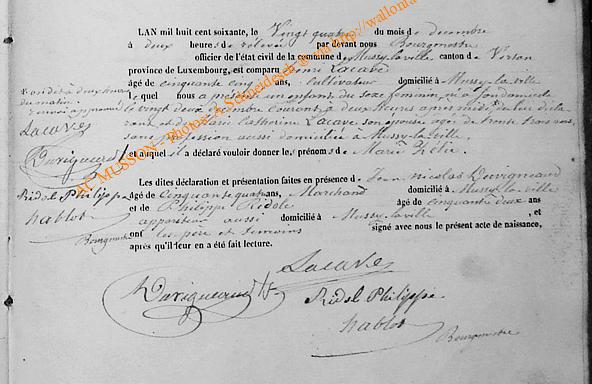 LAN mil huit cent soixante, le Vingt quatre du mois de décembre
à deux heures de relevée par devant nous Bourgmestre
officier de l'état civil de la commune de Mussy-la-ville canton de Virton
province de Luxembourg, est comparu Henri Lacave
âgé de cinquante cinq ans, cultivateur domicilié à Mussy-la-ville
lequel nous a présenté un enfant du sexe féminin, né à son domicile
le vingt deux décembre courant à deux heures après midi, de lui décla
rant et de Marie Catherine Lacave son épouse agée de trente trois ans,
sans profession aussi domiciliée à Mussy-la-ville
et auquel il a déclaré vouloir donner les prénoms de Marie Zélie.
Les dites déclaration et présentation faites en présence de Jean Nicolas
âgé de Cinquante quatre ans, Marchand domicilié à Mussy-la-ville
et de Philippe Ridole âgé de cinquante deux ans
appariteur aussi domicilié à Mussy-la-ville, et
ont les père et témoins signé avec nous le présent acte de naissance,
après qu'il leur en a été fait lecture.
deux heures
du matin.
approuvé
Lacave
Ridel Philippe
Nablot
Bourgmestre
Lacave
Ridel Philippe
Nablot
Bourgmestre
AC MUSSON - Photos A. Schneidesch @ http://wallonia